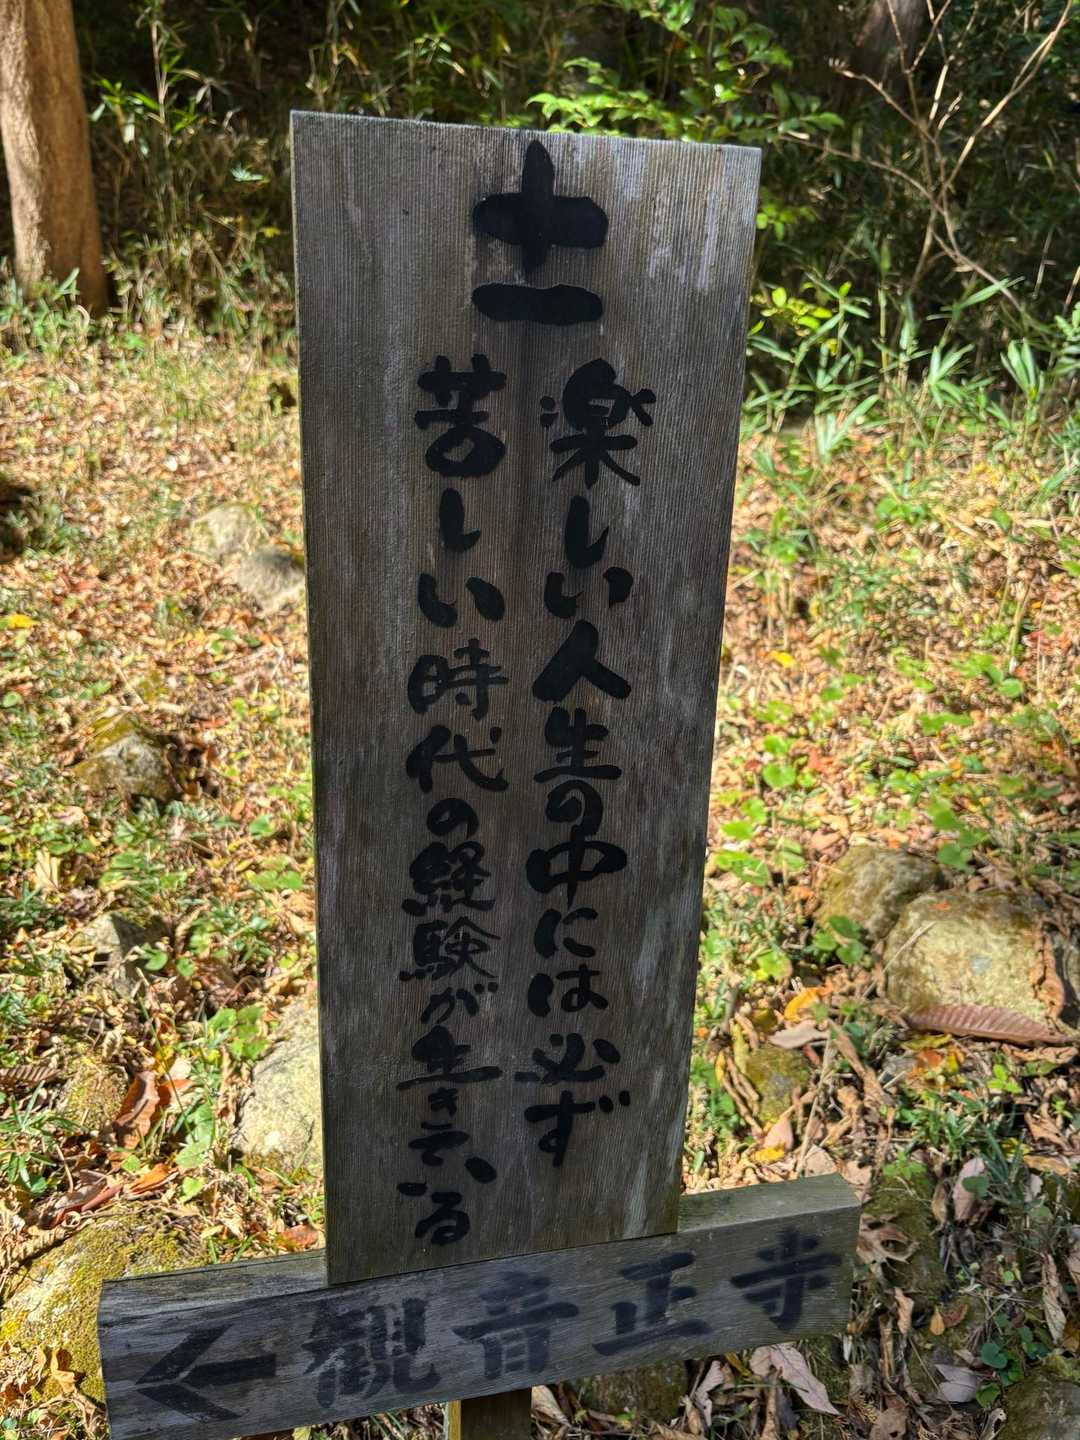 十一
楽しい人生の中には必ず
苦しい時代の経験が生きている
観音正寺